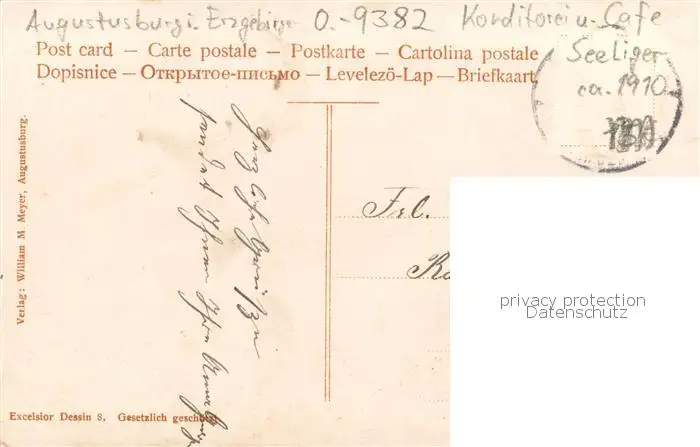 Augustusburg i. Erzgebirge O.-9382 Konditorei u. Cafe
Seeliger
ca. 1910
Post card – Carte postale – Postkarte – Cartolina postale
Dopisnice – Открытое-письмо – Levelezö-Lap – Briefkaart
Herzliche Grüße
sendet Ihnen Ihre
Frl.
Verlag: William M. Meyer, Augustusburg.
Excelsior Dessin 8. Gesetzlich
privacy protection
Datenschutz